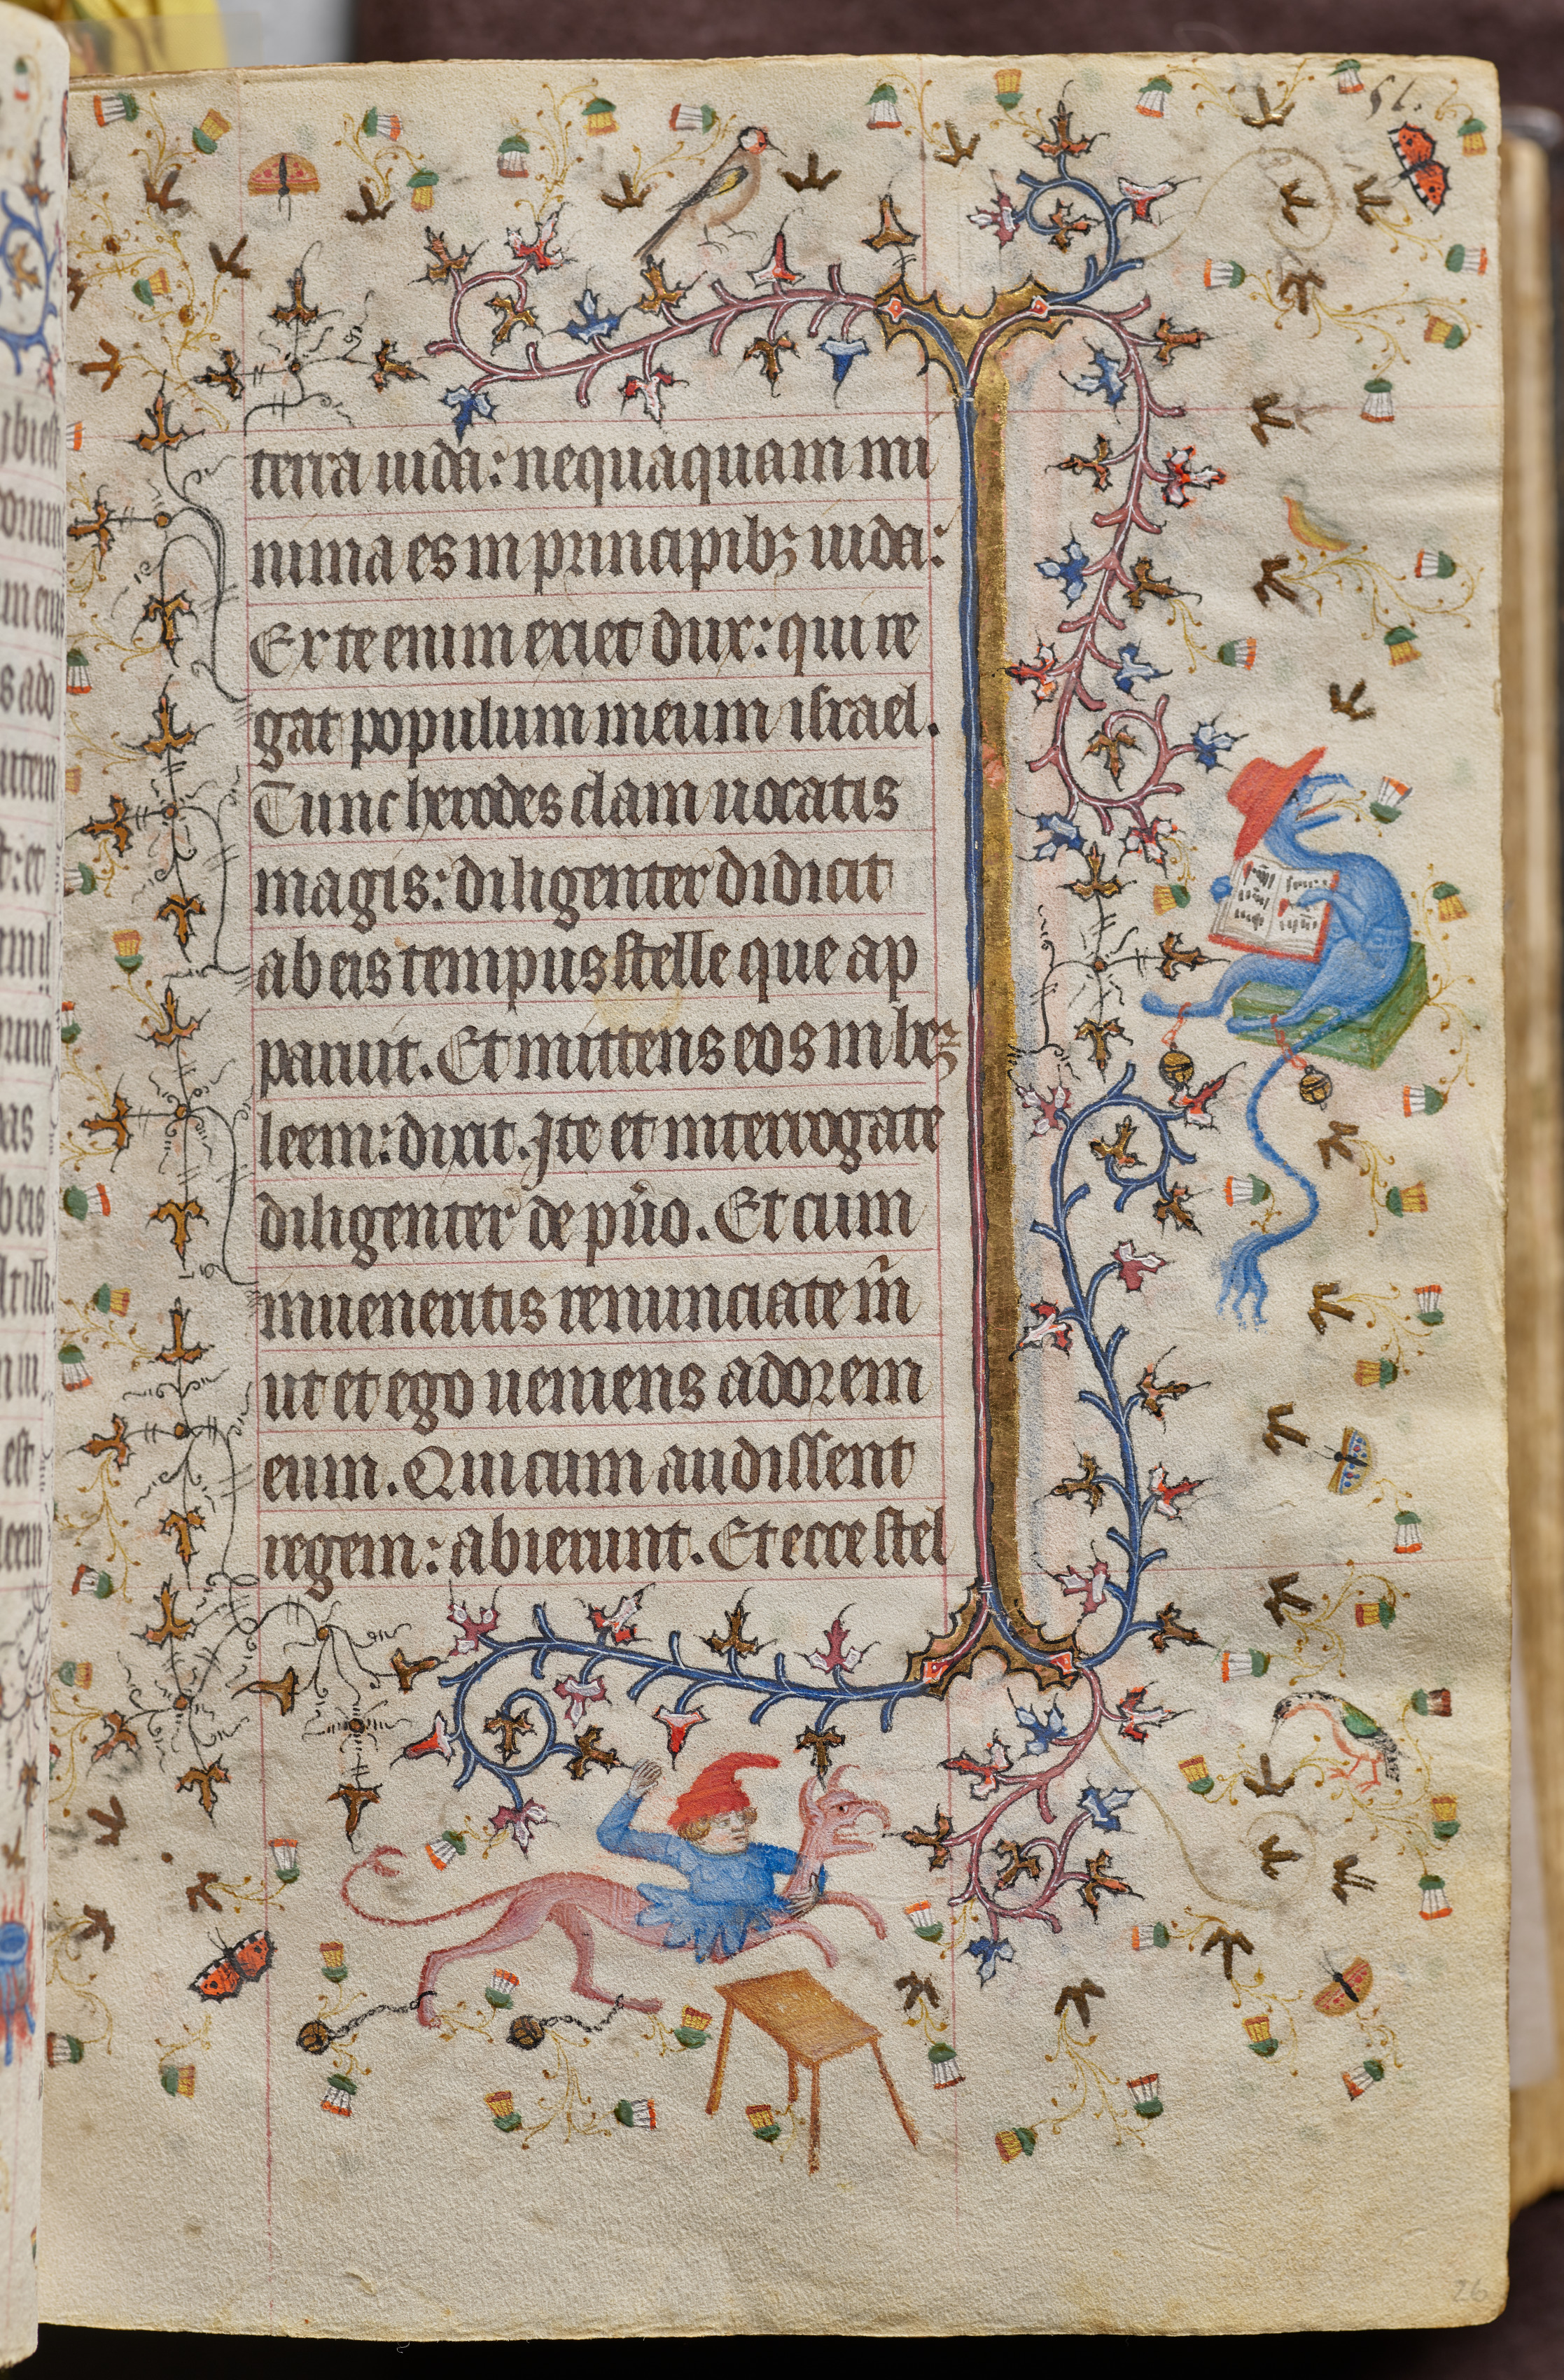 51.
terra iuda: nequaquam mi
nima es in principibꝫ iuda:
Ex te enim exiet dux: qui re
gat populum meum israel.
Tunc herodes clam uocatis
magis: diligenter didicit
ab eis tempus stelle que ap
paruit. Et mittens eos in beꝫ
leem: dixit. Ite et interrogate
diligenter de pu̾o. Et cum
inueneritis renunciate m̄
ut et ego ueniens adorem
eum. Qui cum audissent
regem: abierunt. Et ecce stel
26